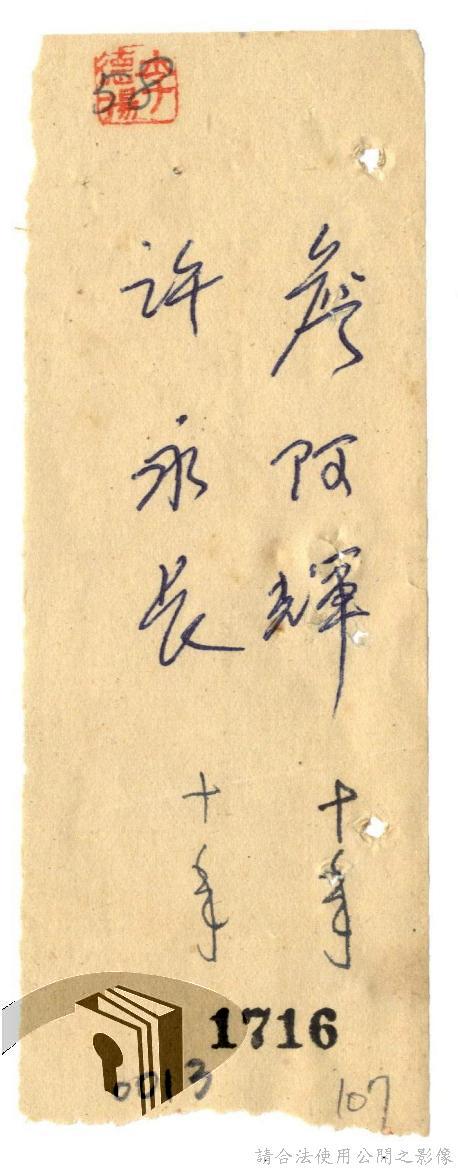 李德揚
58
詹阿輝 十年
許永長 十年
1716
0013
107
請合法使用公開之影像